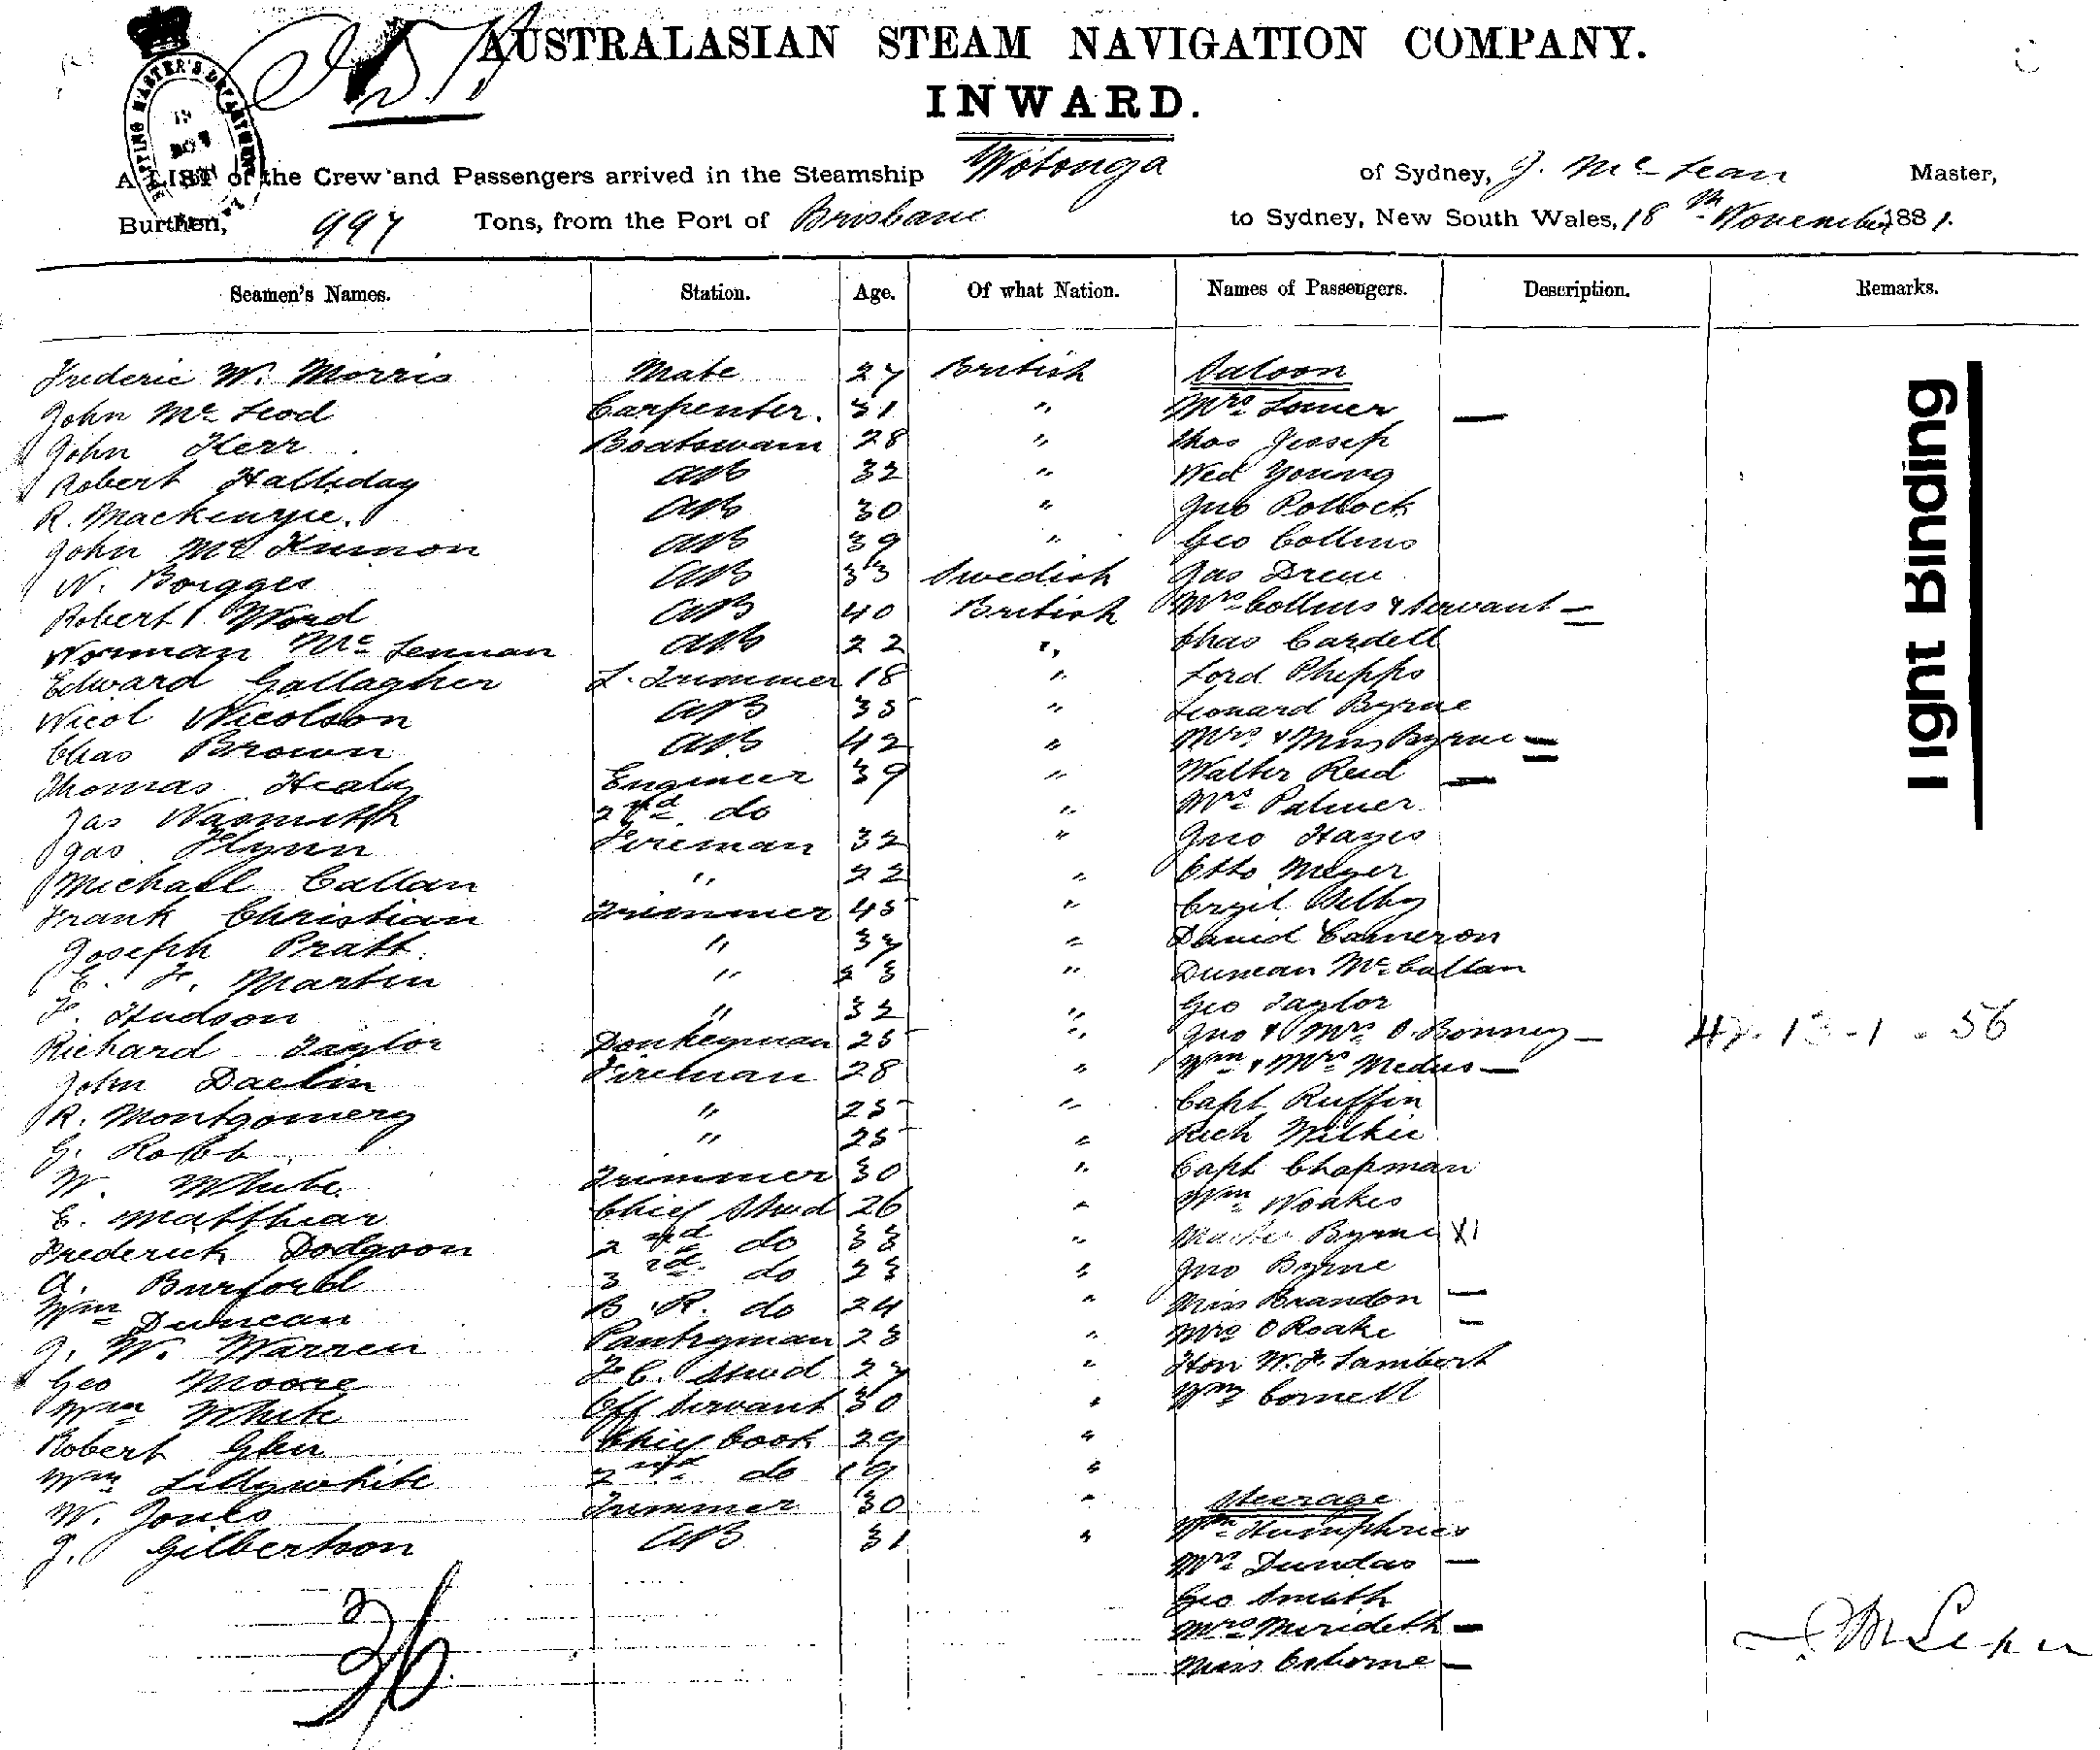 AUSTRALASIAN STEAM NAVIGATION COMPANY.
INWARD.
A LIST of the Crew and Passengers arrived in the Steamship Wotonga of Sydney, J. McLean Master,
Burthen, 997 Tons, from the Port of Brisbane to Sydney, New South Wales, 18th November 1881.
Seamen's Names. Station. Age. Of what Nation. Names of Passengers. Description. Remarks.
Frederic W. Morris Mate 27 British Saloon
John McLeod Carpenter. 31 " Mrs Lomer —
John Kerr Boatswain 28 " Thos Jessep
Robert Halliday AB 32 " Ned Young
R. Mackenzie. AB 30 " Jno Pollock
John McKinnon AB 39 " Geo Collins
N. Borgges AB 33 Swedish Jas Drew
Robert Word AB 40 British Mrs Collins & Servant —
Norman McLennan AB 22 " Chas Cardell
Edward Gallagher L. Trimmer 18 " Lord Phipps
Nicol Nicolson AB 35 " Leonard Byrne
Chas Brown AB 42 " Mrs & Miss Byrne —
Thomas Healy Engineer 39 " Walter Reid
Jas Wasmuth 2nd do " Mrs Palmer —
Jas Flynn Fireman 32 " Jno Hayes
Michael Callan " 22 " Otto Meyer
Frank Christian Trimmer 45 "
Joseph Pratt " 37 " David Cameron
E. F. Martin " 23 " Duncan McCallan
F. Hudson " 32 " Geo Taylor
Richard Taylor Donkeyman 25 " Jno & Mrs O. Bonney — 47-13-1-56
John Daelin Fireman 28 " Wm & Mrs Medus —
R. Montgomery " 25 " Capt Ruffin
G. Robb " 25 " Rich Wilkie
W. White Trimmer 30 " Capt Chapman
E. Matthias Chief Stwd 26 " Wm Noakes
Frederick Dodgson 2nd do 33 " Master Byrne X1
A. Burford 3rd do 23 " Jno Byrne
Wm Duncan B. R. do 24 " Miss Brandon —
J. W. Warren Pantryman 23 " Mrs O Roake —
Geo Moore F C. Stwd 27 " Hon W. F. Lambert
Wm White Off Servant 30 " Wm Cornell
Robert Glen Chief Cook 29 "
Wm Lillywhite 2nd do 19 "
W. Jones Trimmer 30 " Steerage
J. Gilbertson AB 31 " Wm Humphries
Mrs Dundas —
Geo Smith
36 Mrs Merideth —
Miss Osborne —
J McLean
Tight Binding